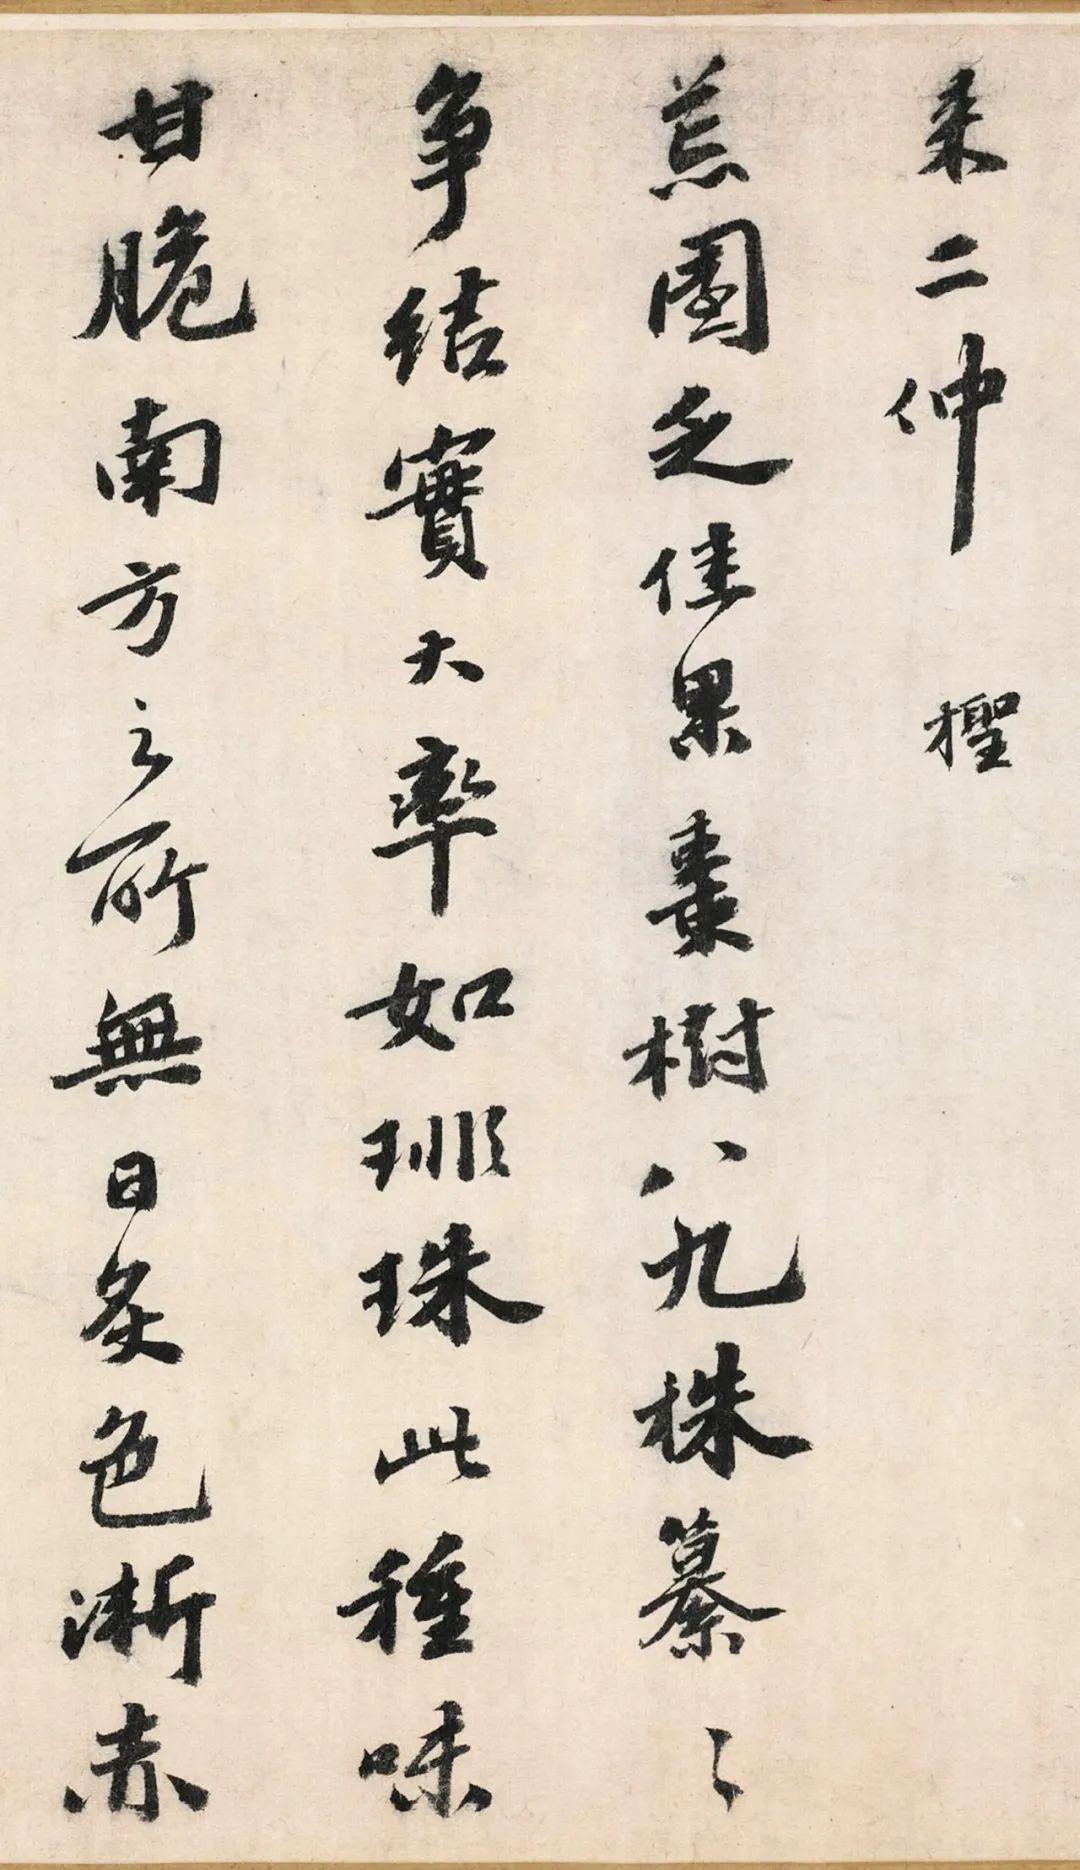 来二仲　檉
荒園乏佳果棗樹八九株纂〻
争結實大率如琲珠此種味
甘脆南方之所無日炙色漸赤